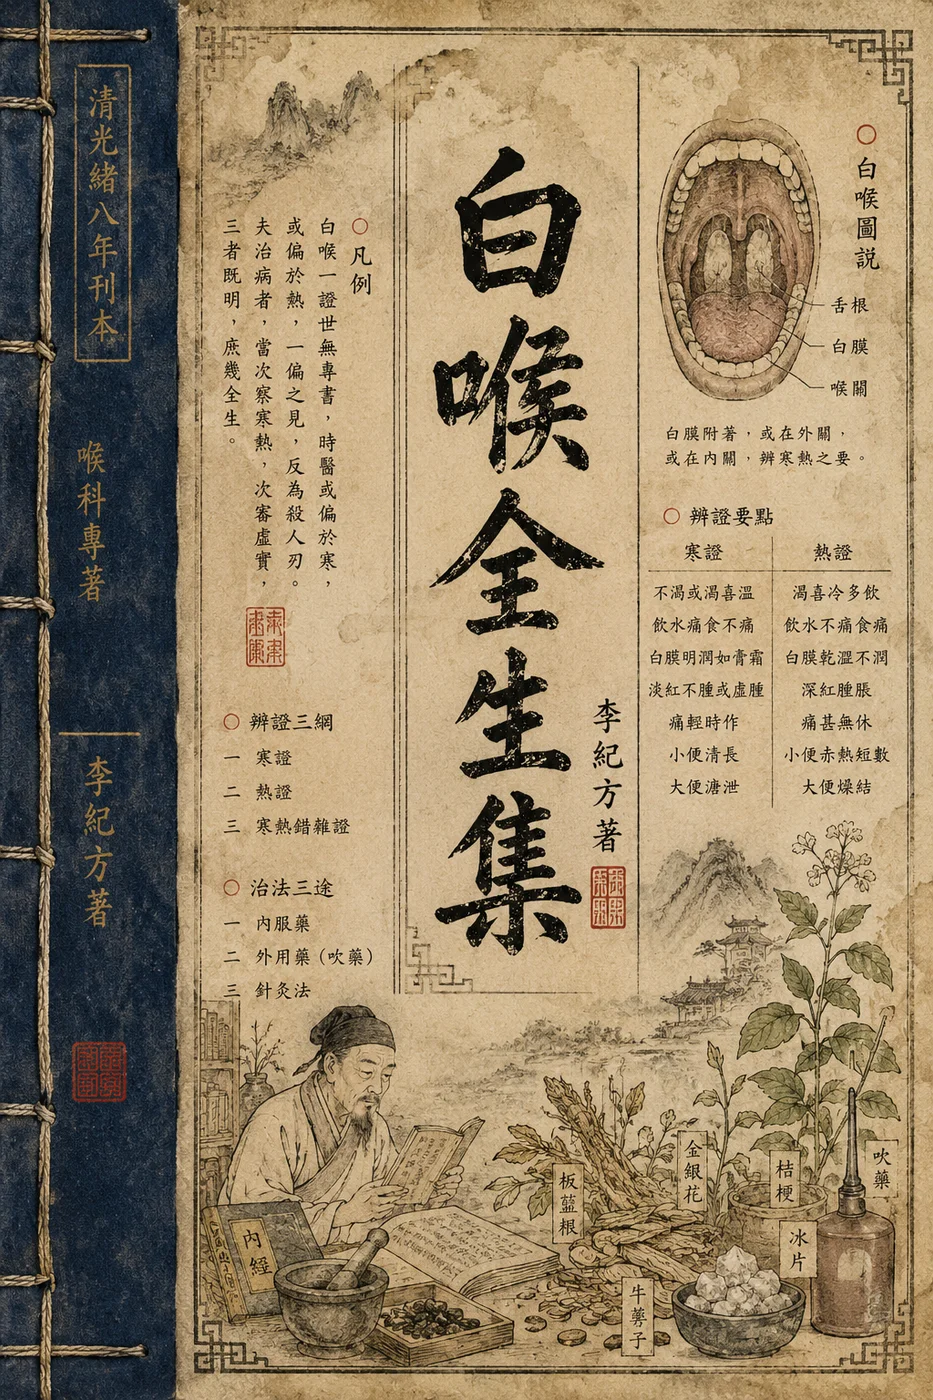 清光緒八年刊本
喉科專著
李紀方著
白喉全生集
李紀方著
白喉圖説
舌根
白膜
喉關
白膜附著，或在外關，
或在内關，辨寒熱之要。
辨證要點
寒證
熱證
不渴或渴喜溫
渴喜冷多飲
飲水痛食不痛
飲水不痛食痛
白膜明潤如膏霜
白膜乾澀不潤
淡紅不腫或虛腫
深紅腫脹
痛輕時作
痛甚無休
小便清長
小便赤熱短數
大便溏泄
大便燥結
凡例
白喉一證世無專書，時醫或偏於寒，
或偏於熱，一偏之見，反為殺人刃。
夫治病者，當次察寒熱，次審虛實，
三者既明，庶幾全生。
辨證三綱
一 寒證
二 熱證
三 寒熱錯雜證
治法三途
一 內服藥
二 外用藥（吹藥）
三 針灸法
內經
板藍根
金銀花
桔梗
吹藥
冰片
牛蒡子